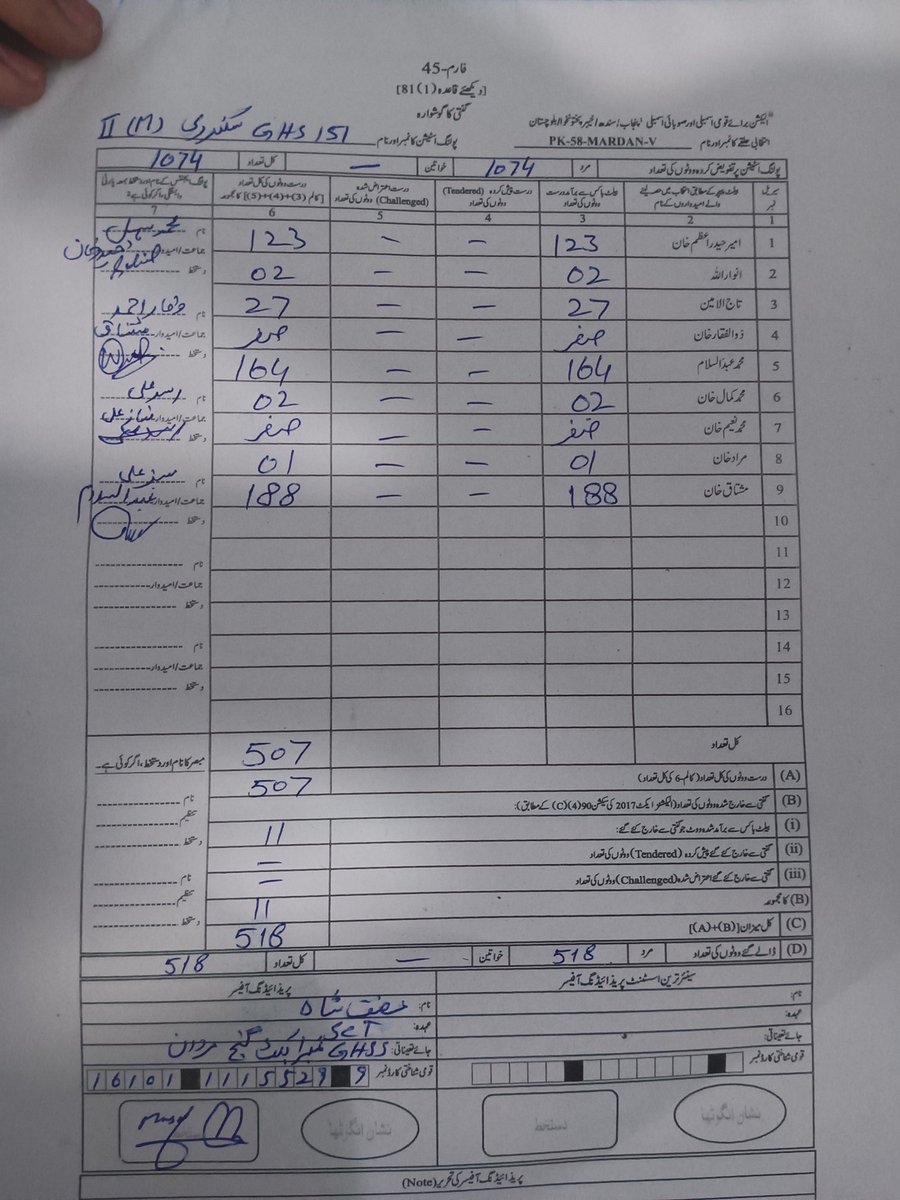 فارم-45
[دیکھئے قاعدہ (1)81]
گنتی کا گوشوارہ
الیکشن برائے قومی اسمبلی اور صوبائی اسمبلی پنجاب/سندھ/خیبر پختونخوا/بلوچستان
انتخابی حلقے کا نمبر اور نام PK-58-MARDAN-V
پولنگ اسٹیشن کا نمبر اور نام 151 GHS سکندری (M) II
پولنگ اسٹیشن پر تفویض کردہ ووٹوں کی تعداد مرد 1074 خواتین — کل تعداد 1074
سیریل نمبر
بیلٹ پیپر کے مطابق انتخاب میں حصہ لینے والے امیدواروں کے نام
بیلٹ باکس سے برآمد درست ووٹوں کی تعداد
درست پیش کردہ (Tendered) ووٹوں کی تعداد
درست اعتراض شدہ (Challenged) ووٹوں کی تعداد
درست ووٹوں کی کل تعداد [کالم (3)+(4)+(5)] کا مجموعہ
1 2 3 4 5 6 7
1 امیر حیدر اعظم خان 123 — — 123
2 انوار اللہ 02 — — 02
3 تاج الامین 27 — — 27
4 ذوالفقار خان صفر — — صفر
5 محمد عبدالسلام 164 — — 164
6 محمد کمال خان 02 — — 02
7 محمد نعیم خان صفر — — صفر
8 مراد خان 01 — — 01
9 مشتاق خان 188 — — 188
10
11
12
13
14
15
16
نام
جماعت/امیدوار
دستخط
نام وقار احمد
جماعت/امیدوار مشتاق
دستخط
نام اسد علی
جماعت/امیدوار
دستخط
نام سبز علی
جماعت/امیدوار عبدالسلام
دستخط
نام
جماعت/امیدوار
دستخط
نام
جماعت/امیدوار
دستخط
کل تعداد 507
مبصر کا نام اور دستخط، اگر کوئی ہے۔
(A) درست ووٹوں کی کل تعداد (کالم-6 کی کل تعداد) 507
(B) گنتی سے خارج شدہ ووٹوں کی تعداد (الیکشنز ایکٹ 2017 کی سیکشن 90(4)(C) کے مطابق):
نام
تنظیم
دستخط
(i) بیلٹ باکس سے برآمد شدہ ووٹ جو گنتی سے خارج کئے گئے: 11
(ii) گنتی سے خارج کئے گئے پیش کردہ (Tendered) ووٹوں کی تعداد —
(iii) گنتی سے خارج کئے گئے اعتراض شدہ (Challenged) ووٹوں کی تعداد —
نام
تنظیم
دستخط
(B) کا مجموعہ 11
(C) کل میزان [(A)+(B)] 518
(D) ڈالے گئے ووٹوں کی تعداد مرد 518 خواتین — کل تعداد 518
سینئر ترین اسسٹنٹ پریذائیڈنگ آفیسر
نام:
عہدہ:
جائے تعیناتی:
قومی شناختی کارڈ نمبر
نشان انگوٹھا
دستخط
پریذائیڈنگ آفیسر
نام:
عہدہ: SCT
جائے تعیناتی: GHSS نمبر 1 بکٹ گنج مردان
قومی شناختی کارڈ نمبر 16101 1115529 9
نشان انگوٹھا
پریذائیڈنگ آفیسر کی تحریر (Note)